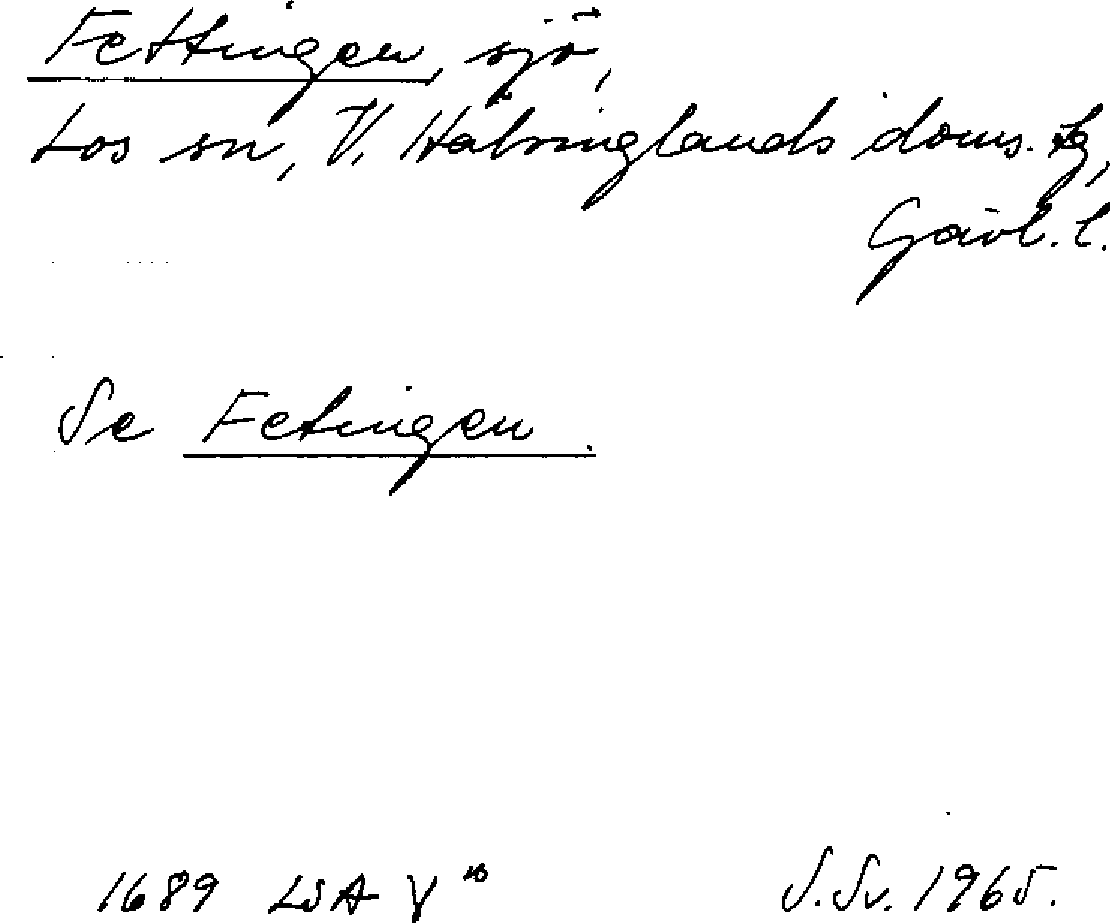 Fettingen, sjö,
Los sn, V. Hälsinglands doms. tg,
Gävl. l.
Se Fetingen.
1689 LSA V 10
S. Sv. 1965.